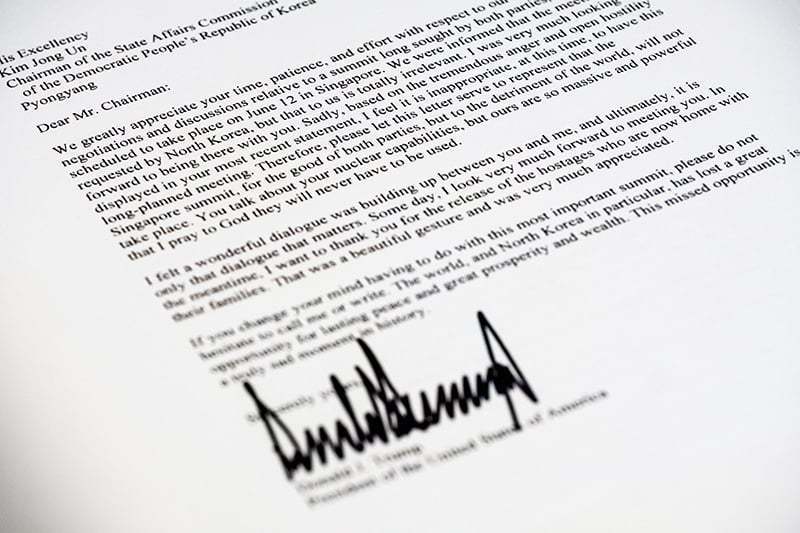 is Excellency
Kim Jong Un
Chairman of the State Affairs Commission
of the Democratic People's Republic of Korea
Pyongyang
Dear Mr. Chairman:
We greatly appreciate your time, patience, and effort with respect to our
negotiations and discussions relative to a summit long sought by both parties,
scheduled to take place on June 12 in Singapore. We were informed that the meet
requested by North Korea, but that to us is totally irrelevant. I was very much looking
forward to being there with you. Sadly, based on the tremendous anger and open hostility
displayed in your most recent statement, I feel it is inappropriate, at this time, to have this
long-planned meeting. Therefore, please let this letter serve to represent that the
Singapore summit, for the good of both parties, but to the detriment of the world, will not
take place. You talk about your nuclear capabilities, but ours are so massive and powerful
that I pray to God they will never have to be used.
I felt a wonderful dialogue was building up between you and me, and ultimately, it is
only that dialogue that matters. Some day, I look very much forward to meeting you. In
the meantime, I want to thank you for the release of the hostages who are now home with
their families. That was a beautiful gesture and was very much appreciated.
If you change your mind having to do with this most important summit, please do not
hesitate to call me or write. The world, and North Korea in particular, has lost a great
opportunity for lasting peace and great prosperity and wealth. This missed opportunity is
a truly sad moment in history.
Donald J. Trump
President of the United States of America